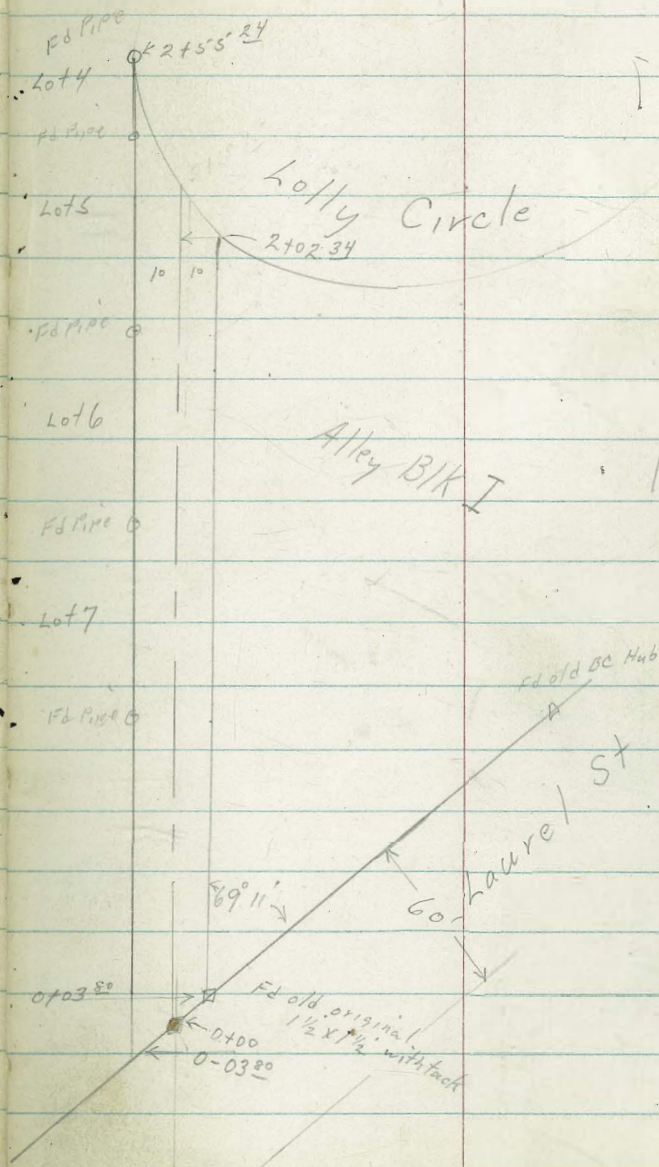 Fd Pipe
2+55 24
Lot 4
Fd Pipe
Lolly Circle
Lot 5
2+02 34
10 10
Fd Pipe
Lot 6
Alley Blk I
Fd Pipe
Lot 7
Fd old BC Hub
Fd Pipe
Laurel St
69° 11'
60'
0+03 80
Fd old original
1 1/2 x 1 1/2 with tack
0+00
0-03 80